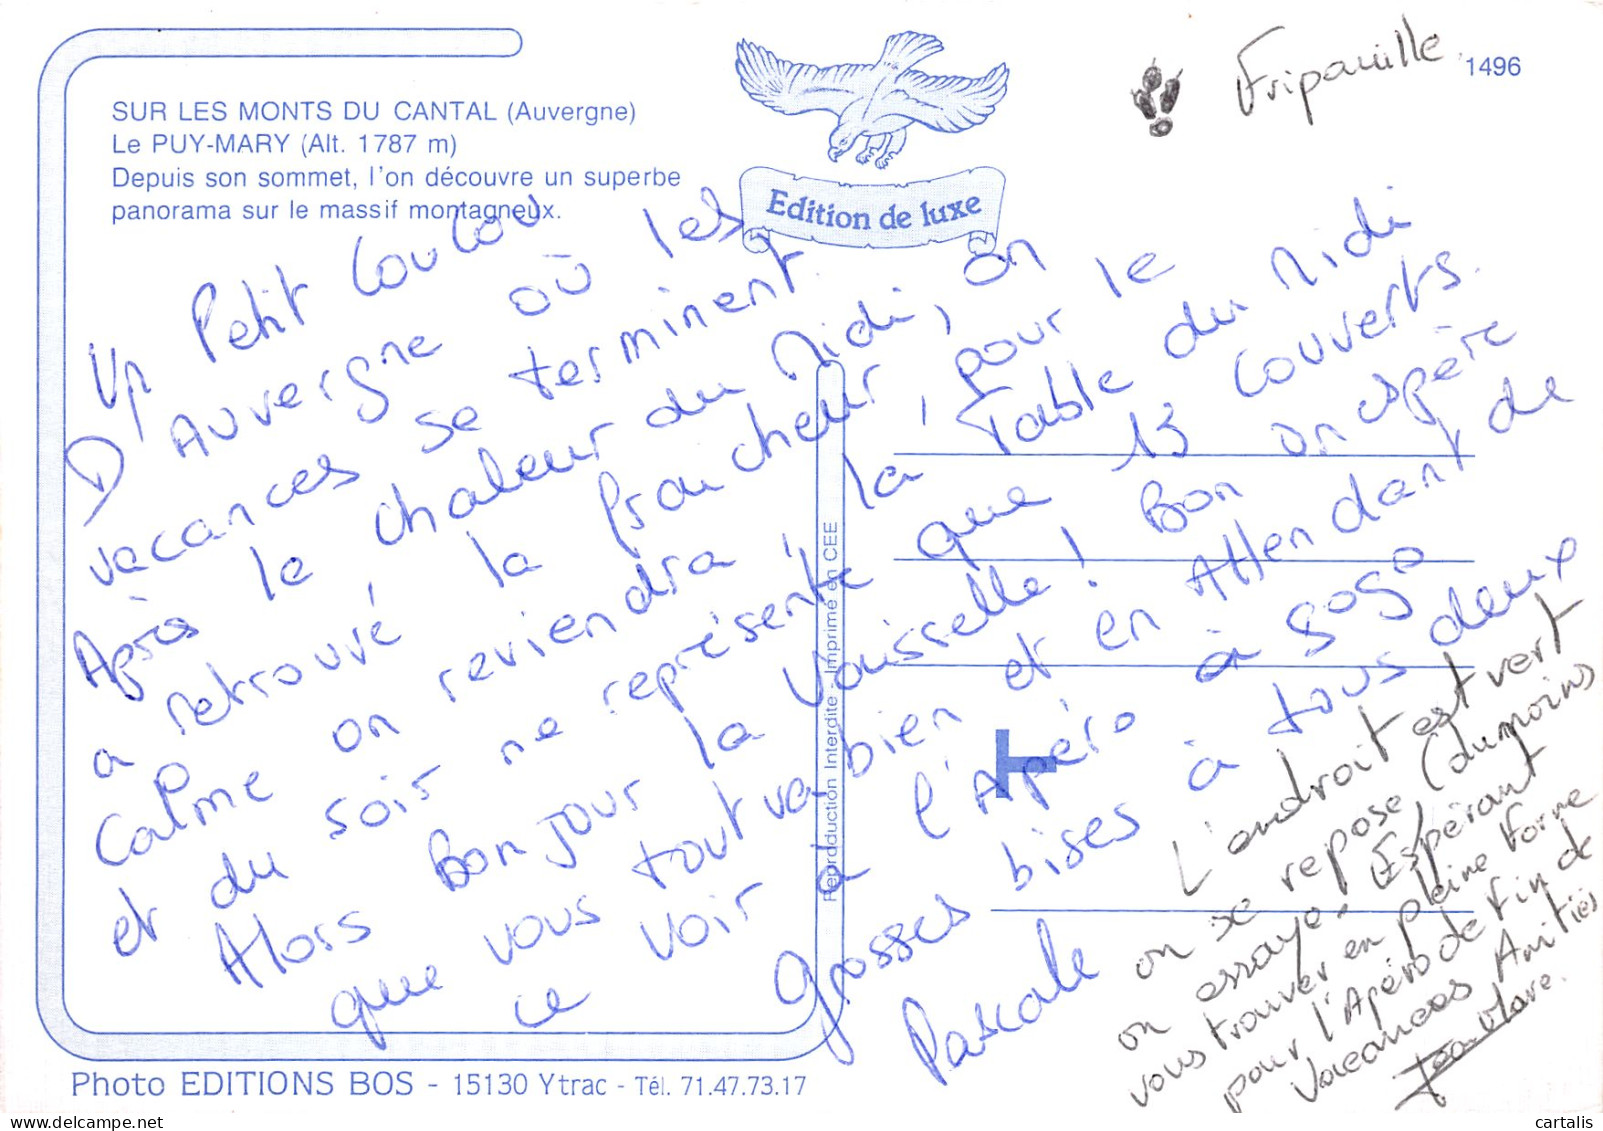 SUR LES MONTS DU CANTAL (Auvergne)
Le PUY-MARY (Alt. 1787 m)
Depuis son sommet, l'on découvre un superbe
panorama sur le massif montagneux.
Edition de luxe
Fripouille
1496
Un Petit Coucou
D'Auvergne où les
vacances se terminent
Après la chaleur du Midi, on
a retrouvé la fraicheur, pour le
calme on reviendra, la Table du Midi
et du soir ne représente que 13 couverts.
Alors Bonjour la Vaisselle! Bon on espère
que vous tout va bien et en Attendant de
ce voir à l'Apéro à gogo
Grosses bises à tous deux
Pascale
L'endroit est vert
on se repose (du moins
on essaye - Espérant
vous trouver en pleine forme
pour l'Apéro de fin de
vacances Amitiés
Jean Marc.
Reproduction Interdite - Imprimé en CEE
Photo EDITIONS BOS - 15130 Ytrac - Tél. 71.47.73.17
delcampe.net
cartalis